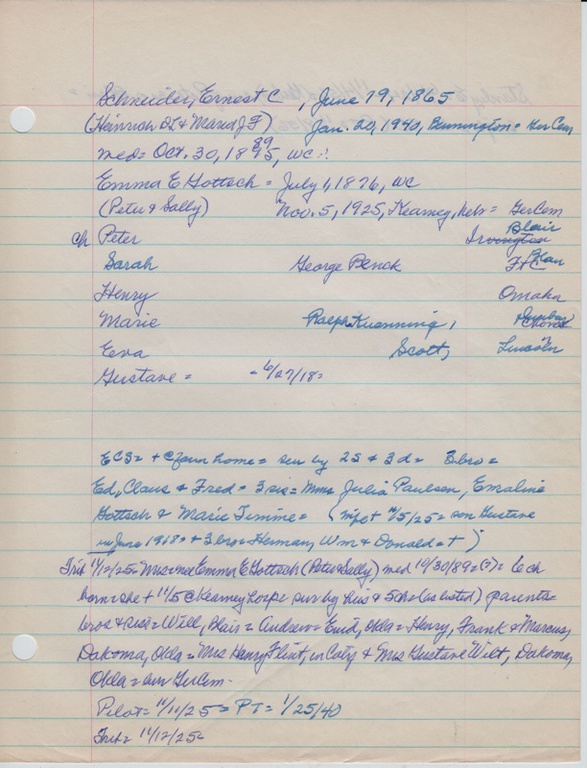 Schneider, Ernest C , June 19, 1865
(Heinrich D & Maria J F) Jan. 20, 1940, Bennington = Ger Cem
med = Oct. 30, 1895, WC
89
Emma E Gottsch = July 1, 1876, WC
(Peter & Sally) Nov. 5, 1925, Kearney, Neb = GerCem
ch Peter Irvington Blair
Sarah George Penck
Henry Omaha
Marie Ralph
Eva Scott, Lincoln
Gustave = - 6/27/18 =
ECS = + @ farm home = sur by 2S & 3 d = 3 bro =
Ed, Claus & Fred = 3 sis = Mmes Julia Paulsen, Emaline
Gottsch & Marie Timme = ( wife + 11/5/25 = son Gustave
in June 1918 = + 3 bro = Herman, Wm & Donald = + )
Trib 11/12/25 = Mrs = Emma E Gottsch (Peter & Sally) med 10/30/89 = (?) = 6 ch
born = she + 11/5 @ Kearney Hospt sur by hus & 5 ch = (as listed) parents =
bros & sis = Will, Blair = Andrew = Enid, Okla = Henry, Frank & Marcus,
Dakoma, Okla = Mrs Henry Flint, in Coty & Mrs Gustave Wilt, Dakoma,
Okla = bur Ger Cem.
Pilot = 11/11/25 = PT = 1/25/40
Trib = 11/12/25